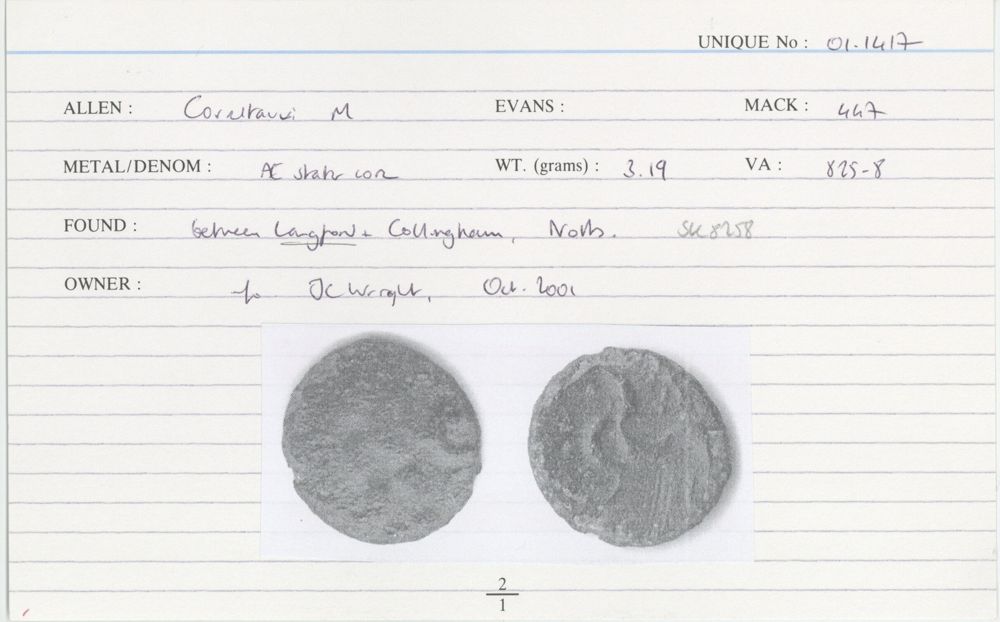 UNIQUE No : 01.1417
ALLEN : Corieltauvi M EVANS : MACK : 447
METAL/DENOM : Æ stater core WT. (grams) : 3.19 VA : 825-8
FOUND : between Langford + Collingham, Notts. SK 8258
OWNER : JC Wright, Oct. 2001
2
1